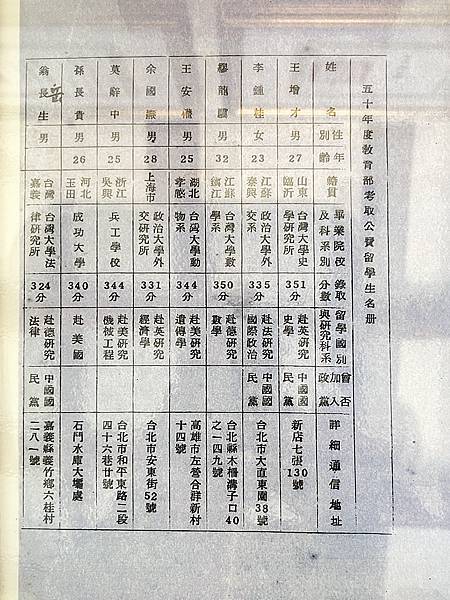 五十年度教育部考取公費留學生名册
姓名 性別 年齡 籍貫 畢業院校及科系別 錄取分數 留學國別與研究科系 曾否加入政黨 詳細通信地址
王增才 男 27 山東臨沂 台灣大學史學研究所 351分 赴英研究史學 中國國民黨 新店七張130號
李鍾桂 女 23 江蘇泰興 政治大學外交系 335分 赴法研究國際政治 中國國民黨 台北市大直東園38號
龍驥 男 32 江蘇鎮江 台灣大學數學系 350分 赴德研究數學 台北縣木柵溝子口40之一四九號
王安 男 25 湖北孝感 台灣大學動物系 344分 赴美研究遺傳學 高雄市左營合群新村十四號
余國 男 28 上海市 政治大學外交研究所 331分 赴英研究經濟學 台北市安東街52號
莫中 男 25 浙江吳興 兵工學校 344分 赴美研究機械工程 台北市和平東路二段四十六巷廿號
孫長貴 男 26 河北玉田 成功大學 340分 赴美國 石門水庫大壩處
翁長生 岳 男 台灣嘉義 台灣大學法律研究所 324分 赴德研究法律 中國國民黨 嘉義縣義竹鄉六桂村二八一號